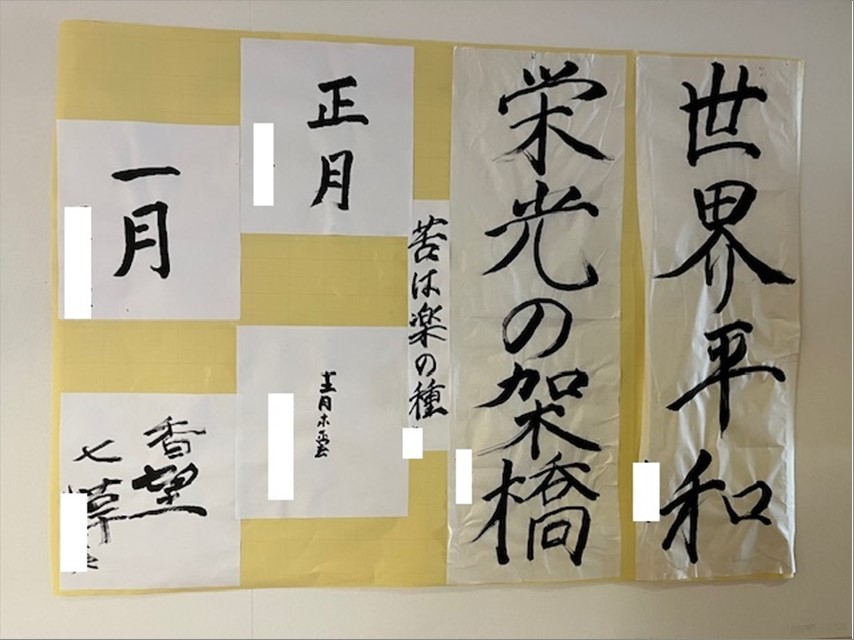 世界平和
栄光の架橋
苦は楽の種
正月
一月
香望
七草